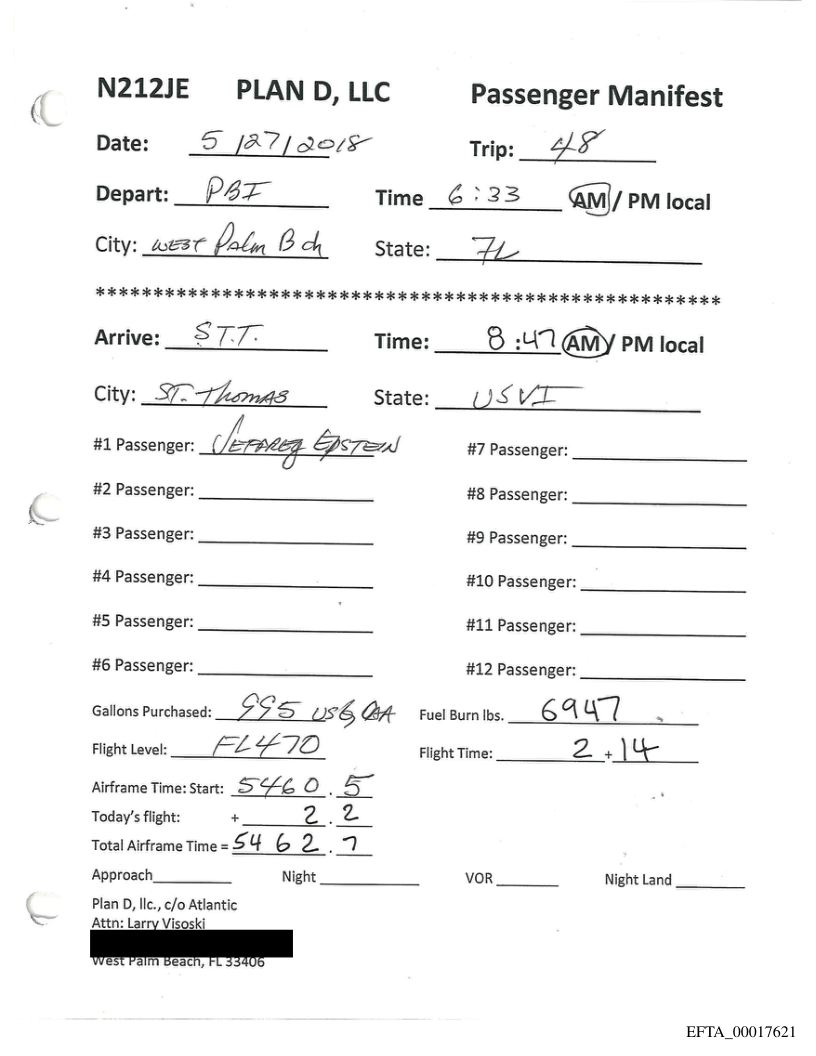 N212JE PLAN D, LLC Passenger Manifest
Date: 5/27/2018 Trip: 48
Depart: PBI Time 6:33 AM / PM local
City: WEST Palm Bch State: FL
******************************************************
Arrive: S.T.T. Time: 8:47 AM / PM local
City: ST. Thomas State: USVI
#1 Passenger: JEFFREY EPSTEIN #7 Passenger:
#2 Passenger: #8 Passenger:
#3 Passenger: #9 Passenger:
#4 Passenger: #10 Passenger:
#5 Passenger: #11 Passenger:
#6 Passenger: #12 Passenger:
Gallons Purchased: 995 USG Fuel Burn lbs. 6947
Flight Level: FL470 Flight Time: 2 + 14
Airframe Time: Start: 5460.5
Today's flight: + 2.2
Total Airframe Time = 5462.7
Approach Night VOR Night Land
Plan D, llc., c/o Atlantic
Attn: Larry Visoski
West Palm Beach, FL 33406
EFTA_00017621